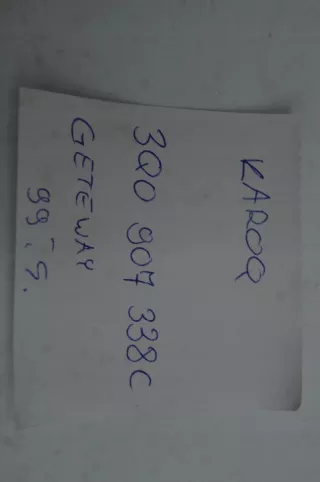 KAROQ
3Q0 907 338C
GETEWAY
99,-S.